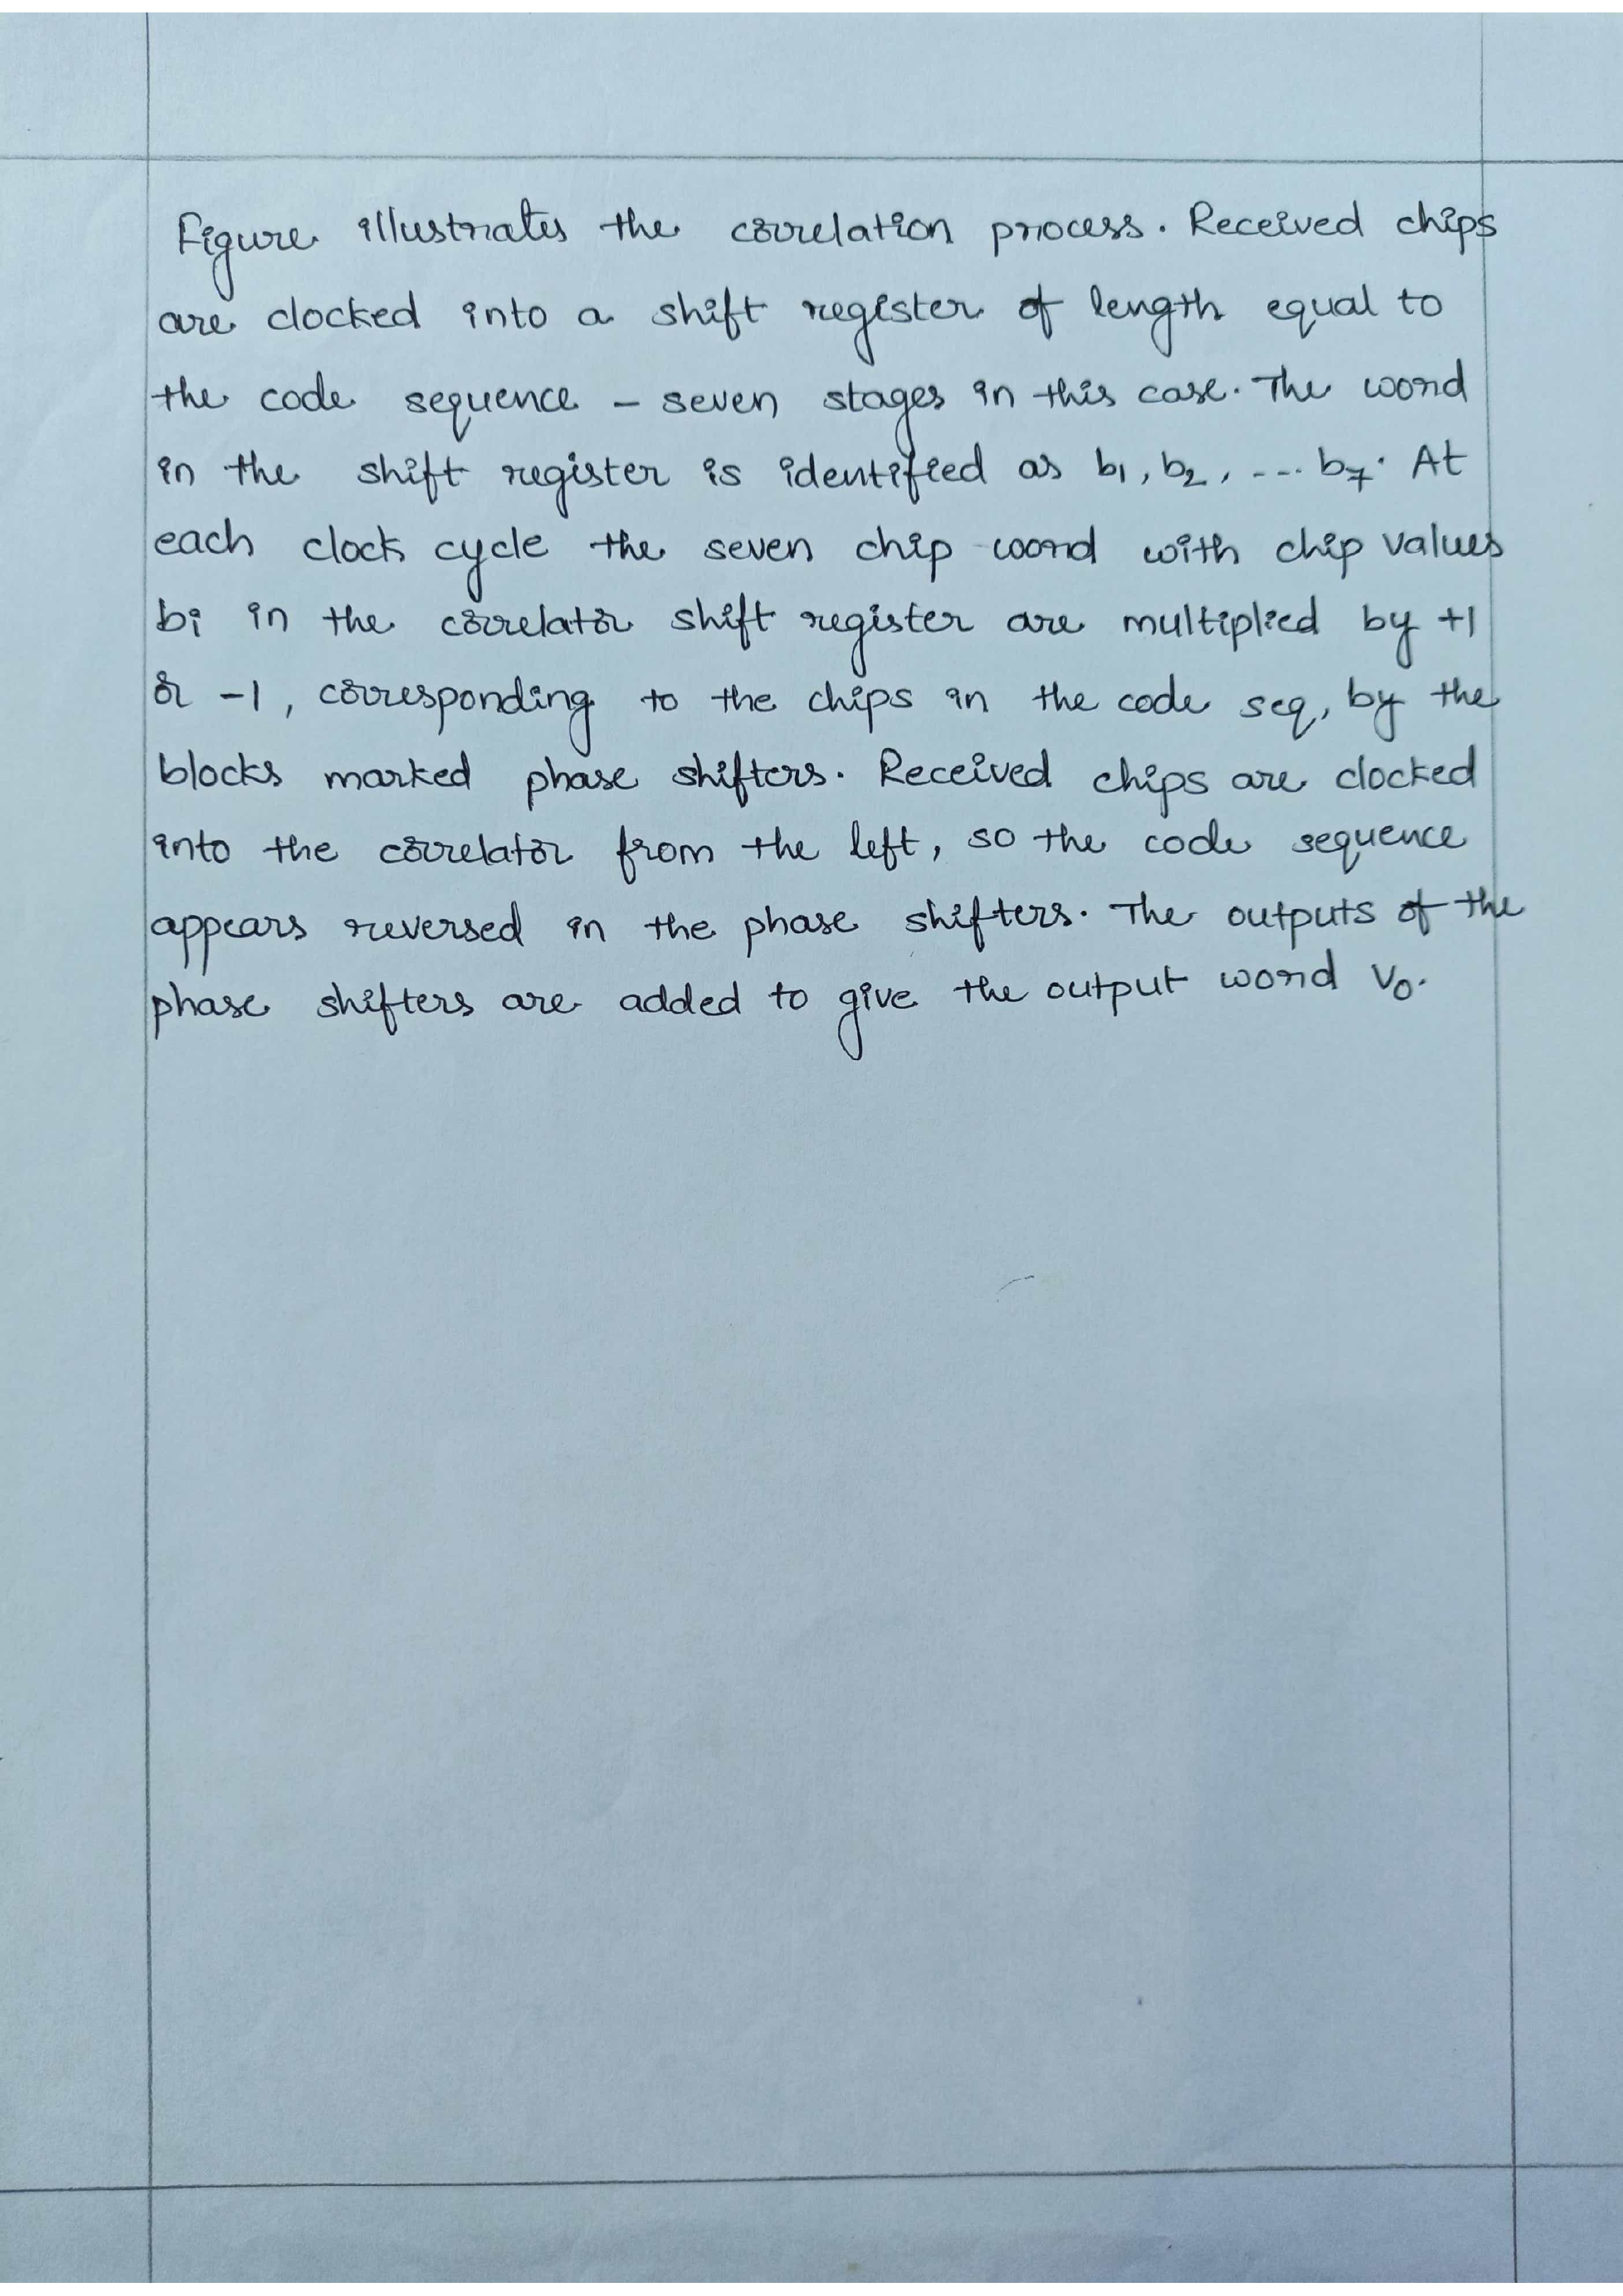 Figure illustrates the correlation process. Received chips
are clocked into a shift register of length equal to
the code sequence - seven stages in this case. The word
in the shift register is identified as b1, b2, ... b7. At
each clock cycle the seven chip word with chip values
bi in the correlator shift register are multiplied by +1
or -1, corresponding to the chips in the code seq, by the
blocks marked phase shifters. Received chips are clocked
into the correlator from the left, so the code sequence
appears reversed in the phase shifters. The outputs of the
phase shifters are added to give the output word V0.